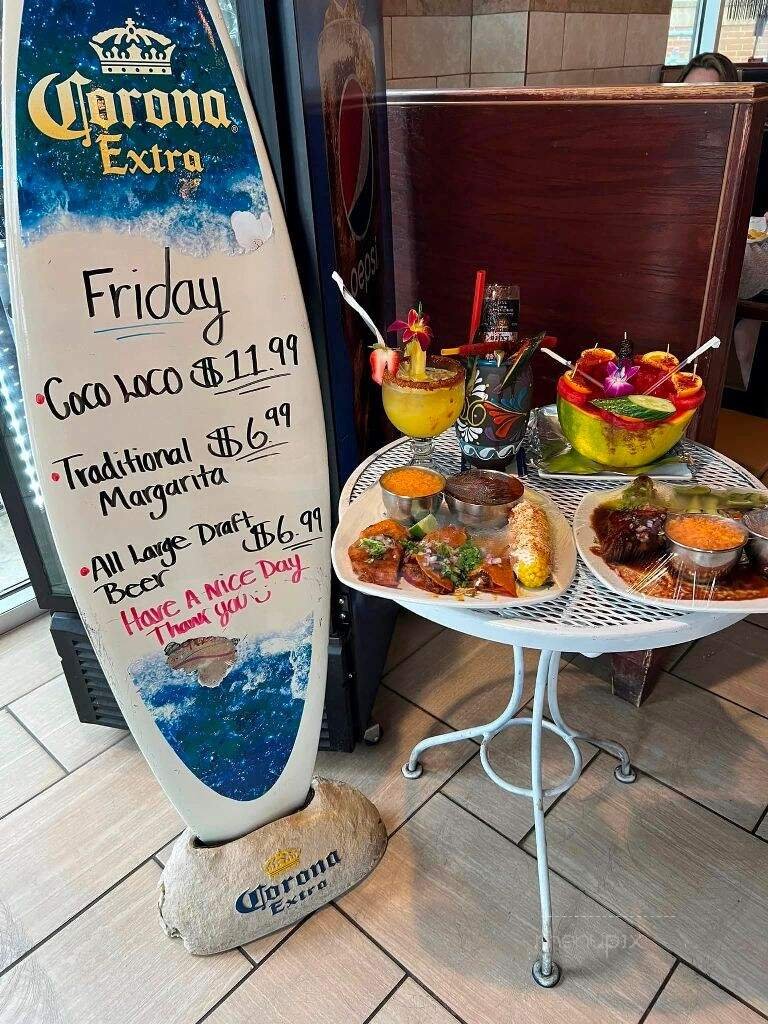 Corona
Extra
Friday
• Coco Loco $11.99
• Traditional $6.99
Margarita
• All Large Draft $6.99
Beer
Have A Nice Day
Thank you
Corona
Extra
pepsi
menupix